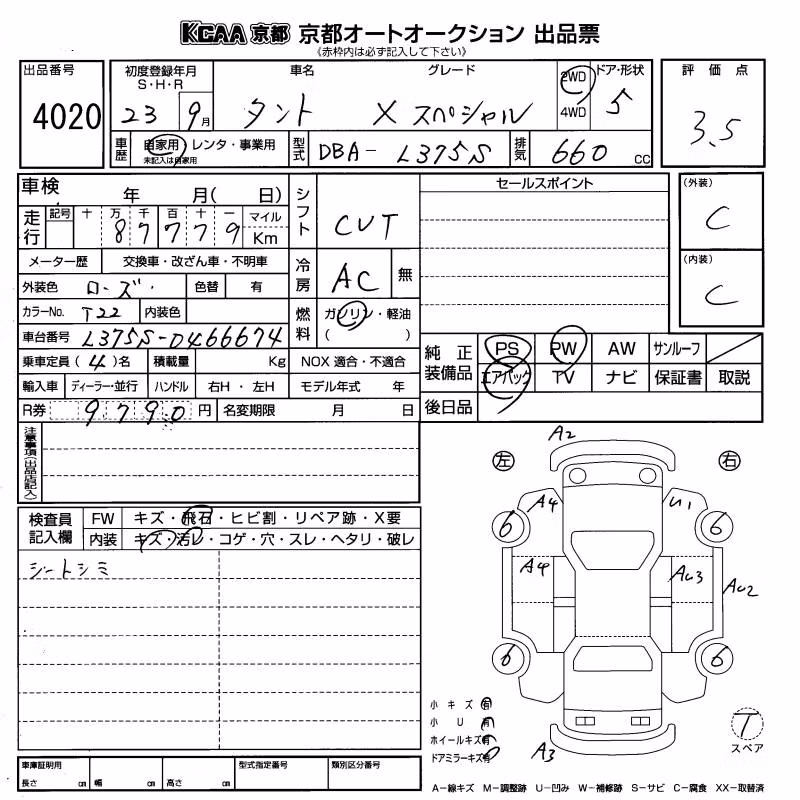 KCAA 京都 京都オートオークション 出品票
《赤枠内は必ず記入して下さい》
出品番号
4020
初度登録年月
S・H・R
車名
グレード
2WD
4WD
ドア・形状
23 9月
タント
X スペシャル
5
評価点
3.5
車歴
自家用・レンタ・事業用
未記入は自家用
型式
DBA- L375S
排気
660 CC
車検 年 月( 日)
走行
記号 十 万 千 百 十 一
87779
マイル
Km
シフト
CVT
セールスポイント
(外装)
C
(内装)
C
メーター歴
交換車・改ざん車・不明車
冷房
AC
無
外装色
ローズ
色替
有
カラーNo.
T22
内装色
燃料
ガソリン・軽油
( )
車台番号
L375S-0466674
乗車定員(4)名
積載量
Kg
NOX 適合・不適合
純正装備品
PS PW AW サンルーフ
エアバック TV ナビ 保証書 取説
輸入車
ディーラー・並行
ハンドル
右H・左H
モデル年式 年
R券
9,790円
名変期限 月 日
後日品
注意事項(出品店記入)
検査員記入欄
FW
キズ・飛石・ヒビ割・リペア跡・X要
内装
キズ・汚レ・コゲ・穴・スレ・ヘタリ・破レ
シートシミ
左
右
A2
A4
U1
6
6
A4
AU3
AU2
6
6
A3
小キズ有
小U有
ホイールキズ有
ドアミラーキズ有
T
スペア
車庫証明用
長さ cm
幅 cm
高さ cm
型式指定番号
類別区分番号
A-線キズ M-調整跡 U-凹み W-補修跡 S-サビ C-腐食 XX-取替済